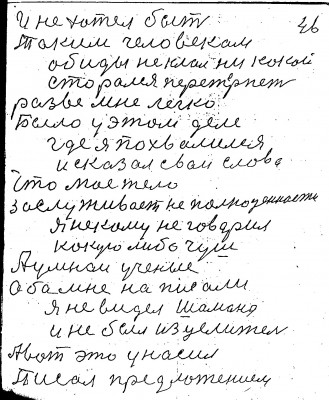 И не хотел быт
26
Таким человекам
обиды не клал ни какой
старался перетерпет
разве мне легко
Было у этом деле
где я похвалился
и сказал сваи слова
Что мое тело
заслуживает не полноценность
я некому не говорил
какую либо чуш
А умнаи учение
Обамне написали
я не видел Шамана
и не был изцелител
А вот это у насил
Писал предложением